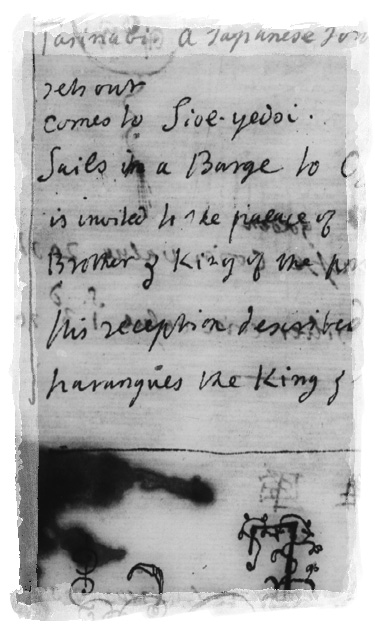 Tarinabi. A Japanese
sets out
comes to Sioe-yedsi.
Sails in a Barge to
is invited to the palace of
Brother & King of the
his reception described
harangues the King &